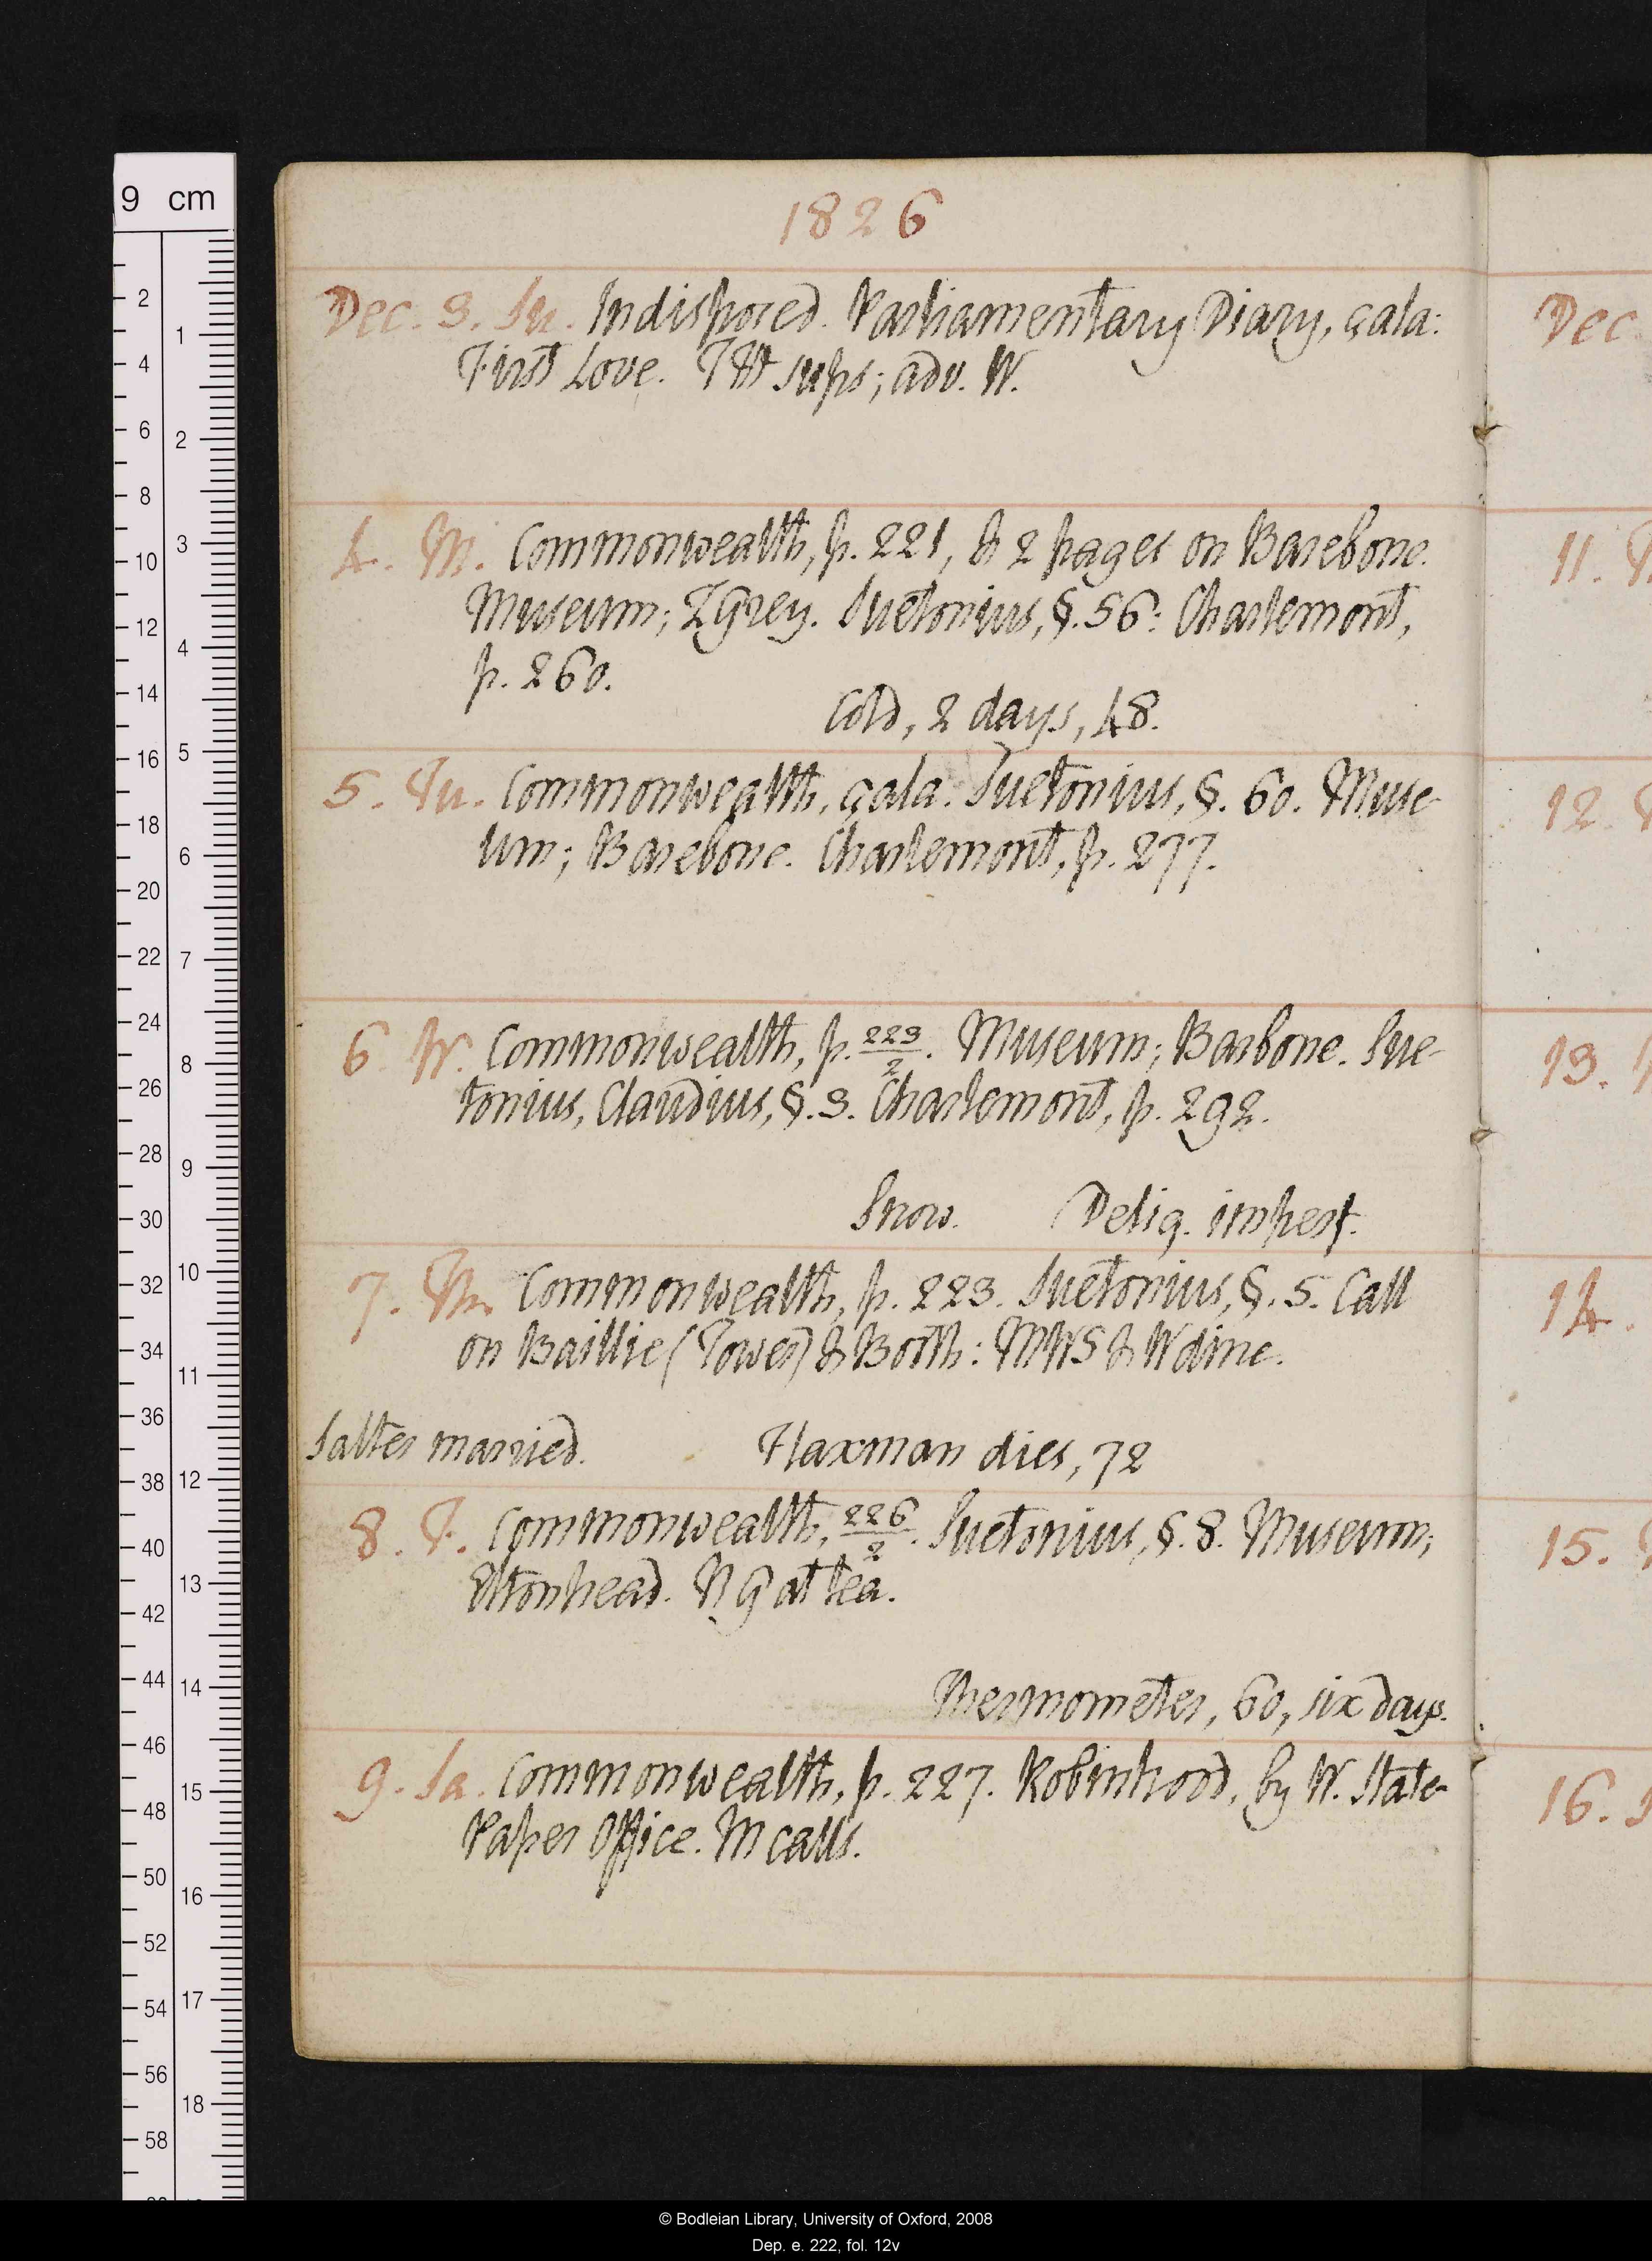 9 cm
1826
Dec. 3. Su. Indisposed. Parliamentary Diary, çala:
First Love. THt sups; adv. W.
4. M. Commonwealth, p. 221, & 2 pages on Barebone.
Museum; Z Grey. Suetonius, §. 56: Charlemont,
p. 260.
Cold, 2 days, 48.
5. Tu. Commonwealth, çala. Suetonius, §. 60. Muse-
um; Barebone. Charlemont, p. 277.
6. W. Commonwealth, p. 223/2. Museum; Barbone. Sue-
tonius, Claudius, §. 3. Charlemont, p. 292.
Snow. Deliq. imperf.
7. Th. Commonwealth, p. 223. Suetonius, §. 5. Call
on Baillie (Tower) & Booth: MWS & W dine.
Salter married. Flaxman dies, 72
8. F. Commonwealth, 226/2. Suetonius, §. 8. Museum;
Eltonhead. N G at tea.
Thermometer, 60, six days.
9. Sa. Commonwealth, p. 227. Robinhood, by W. State-
Paper Office. M calls.
Dec.
11.
12.
13.
14.
15.
16.
© Bodleian Library, University of Oxford, 2008
Dep. e. 222, fol. 12v